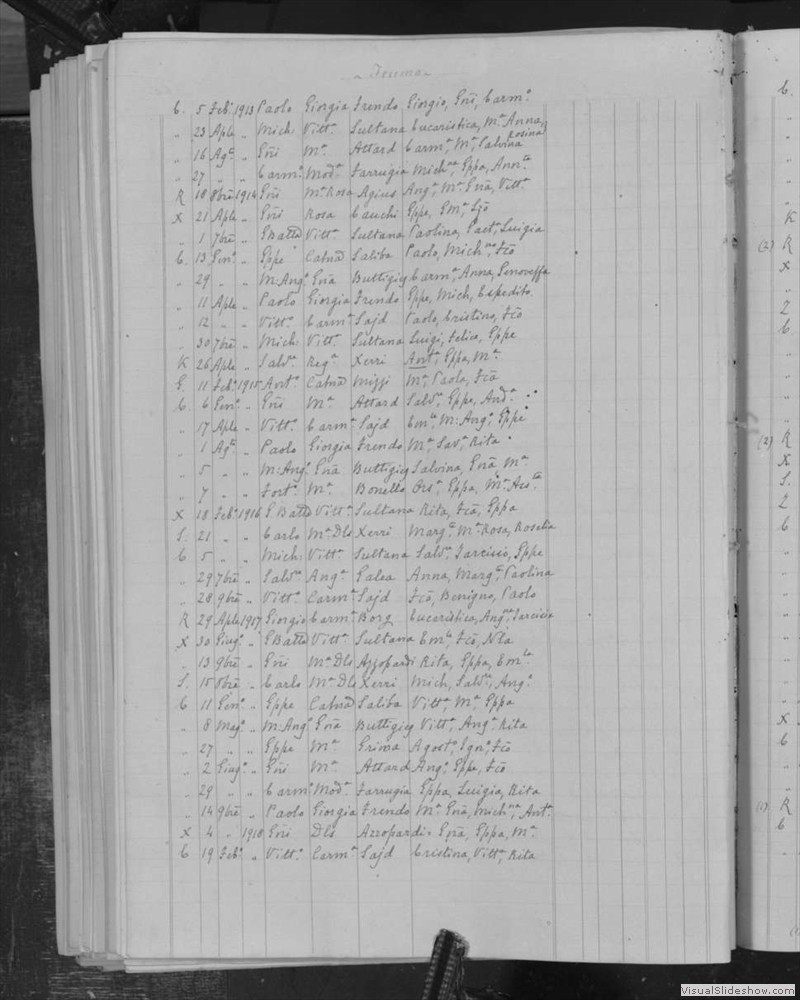 C. 5 Feb.º 1913 Paolo Giorgia Frendo Giorgio, Gñi, Carm.º
" 23 Aple " Mich. Vitt.ª Sultana Eucaristica, M.ª Anna,
Rosina
" 16 Ag.º " Gñi M.ª Attard Carm.ª, M.ª, Calvina
" 27 " " Carm.º Mod.ª Farrugia Mich.na, Gppa, Ann.ta
R 18 8bre 1914 Gñi M.ª Rosa Agius Ang.ª, M.ª Gña, Vitt.ª
X 21 Aple " Gñi Rosa Cauchi Gppe, Em.ª,
" 1 7bre " GBatta Vitt.ª Sultana Paolina, Luigia
C. 13 Gen.º " Gppe Catna Saliba Paolo, Mich.na,
" 29 " " M: Ang.º Gña Buttigieg Carm.ª, Anna, Genoveffa
" 11 Aple " Paolo Giorgia Frendo Gppe, Mich, Espedito
" 12 " " Vitt.º Carm.ª Sajd Paolo, Cristina,
" 30 7bre " Mich. Vitt.ª Sultana Luigi, Felice, Gppe
K 26 Aple " Salv.re Reg.ª Xerri Ant.ª, Gppa, M.ª
G. 11 Feb.º 1915 Ant.º Catna Mizzi M.ª, Paola,
C. 6 Gen.º " Gñi M.ª Attard Salv.re, Gppe, And.ª
" 17 Aple " Vitt.º Carm.ª Sajd Em.le, M: Ang.º, Gppe
" 1 Ag.º " Paolo Giorgia Frendo M.ª, Sav.ª, Rita
" 5 " " M: Ang.º Gña Buttigieg Salvina, Gña, M.ª
" 7 " " Fort.º M.ª Bonello Ors.ª, Gppa, M.ª
X 18 Feb.º 1916 G.Batta Vitt.ª Sultana Rita, Gppa
S. 21 " " Carlo M.ª Dls Xerri Marg.ta, M.ª Rosa, Rosalia
C 5 " " Mich. Vitt.ª Sultana Salv.re, Tarcisio, Gppe
" 29 7bre " Salv.re Ang.ª Galea Anna, Marg.ta, Paolina
" 28 9bre " Vitt.º Carm.ª Sajd Benigno, Paolo
R 29 Aple 1917 Giorgio Carm.ª Borg Eucaristica, Ang.na, Tarcisia
X 30 Giug.º " GBatta Vitt.ª Sultana Em.le,
" 13 9bre " Gñi M.ª Dls Azzopardi Rita, Gppa, Em.la
S. 15 8bre " Carlo M.ª Dls Xerri Mich, Salv.re, Ang.º
C 11 Gen.º " Gppe Catna Saliba Vitt.ª, M.ª, Gppa
" 8 Mag.º " M: Ang.º Gña Buttigieg Vitt.ª, Ang.ª, Rita
" 27 " " Gppe M.ª Grima Agost.º, Ign.º,
" 2 Giug.º " Gñi M.ª Attard Ang.º, Gppe,
" 29 " " Carm.º Mod.ª Farrugia Gppa, Luigia, Rita
" 14 9bre " Paolo Giorgia Frendo M.ª Gña, Mich.na, Ant.ª
X 4 " 1918 Gñi Dls Azzopardi Gña, Gppa, M.ª
C 19 Feb.º " Vitt.º Carm.ª Sajd Cristina, Vitt.ª, Rita
C.
K
(2) R
X
"
2
C
(2) R
X
S.
2
C
X
C
(1) R
C
VisualSlideshow.com